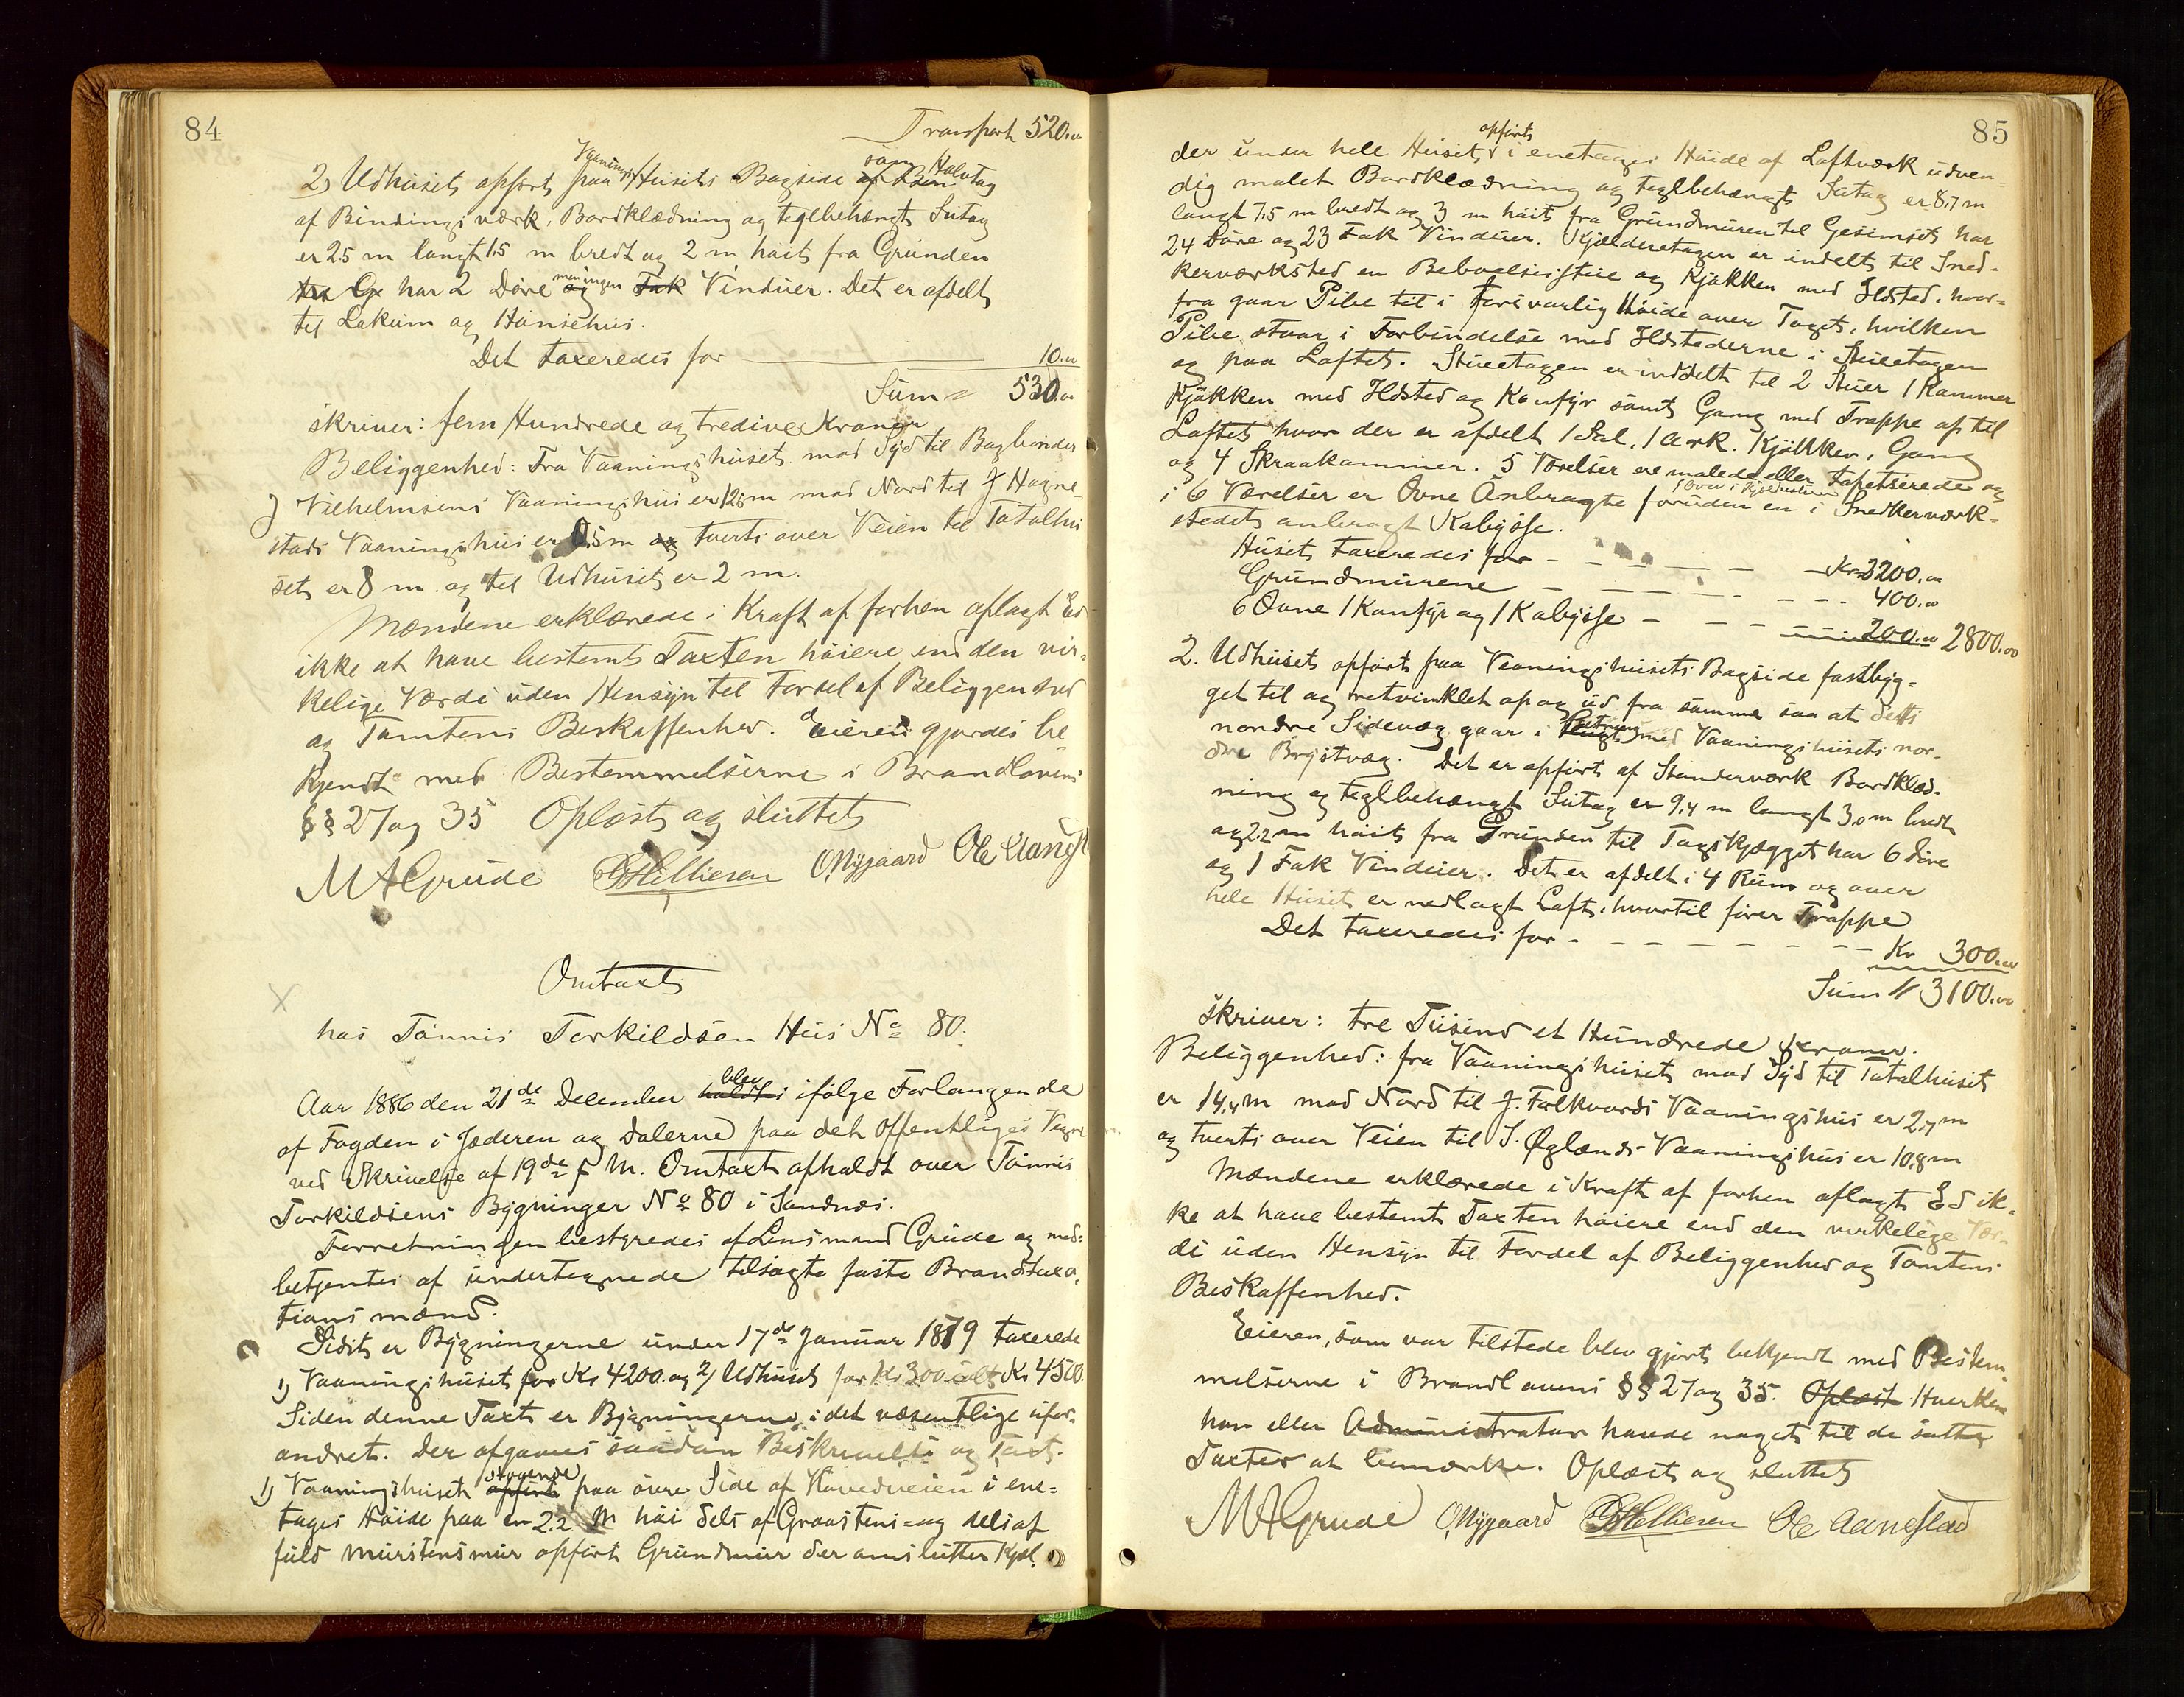 84
Transport 520.00
2) Udhuset opført paa Vaanings Husets Bagside af Bin som Halvtag
af Bindingsværk, Bordklædning og teglbehængt Sutag
er 2.5 m langt 1,5 m bredt og 2 m høit fra Grunden
tra Ge har 2 Døre og men ingen Fak Vinduer. Det er afdelt
til Lokum og Hønsehus.
Det taxeredes for 10.00
Sum = 530.00
skriver: fem Hundrede og tredive Kroner
Beliggenhed: Fra Vaaningshuset mod Syd til Bagbinder
J Vilhelmsens Vaaningshus er 12,5m mod Nord til J Hogne-
stads Vaaningshus er 0.5m og tverts over Veien til Totalhu
set er 8 m. og til Udhuset er 2 m.
Mændene erklærede i Kraft af forhen aflagt Ed
ikke at have bestemt Taxten høiere end den vir-
kelige Værdi uden Hensyn til Fordel af Beliggenhed
og Tomtens Beskaffenhed. Eieren gjordes be
kjendt med Bestemmelserne i Brandlovens
§§ 27 og 35 Oplæst og sluttet
M A Grude G Helliesen O. Nygaard Ole Aanest
Omtaxt
x
hos Tønnis Torkildsen Hus No 80.
Aar 1886 den 21de December holdt blev i ifølge Forlangende
af Fogden i Jæderen og Dalerne paa det Offentliges Vegne
ved Skrivelse af 19de f M. Omtaxt afholdt over Tønnis
Torkildsens Bygninger No 80 i Sandnæs.
Forretningen bestyredes af Lensmand Grude og med-
betjentes af undertegnede tilsagte faste Brandtaxa-
tions mænd.
Sidst er Bygningerne under 17de Januar 1879 taxerede
1) Vaaningshuset for Kr 4200. og 2) Udhuset for Kr 300 ialt Kr 4500.
Siden denne Taxt er Bygningerne i det væsentlige ufor-
andret. Der afgaves saadan Beskrivelse og Taxt.
1) Vaaningshuset opført staaende paa øvre Side af Hovedveien i ene-
tages Høide paa en 2.2 M høi dels af Graastens- og dels af
fuld murstensmur opført Grundmur der omslutter Kjæl-
85
der under hele Huset, opført i enetages Høide af Loftværk udven-
dig malet Bordklædning og teglbehængt Sutag er 8,7 m
langt 7,5 m bredt og 3 m høit fra Grundmuren til Gesimset har
24 Døre og 23 Fak Vinduer. Kjælderetagen er indelt til Sned-
kerværksted en Beboelsesstue og Kjøkken med Ildsted, hvor-
fra gaar Pibe til i forsvarlig Høide over Taget, hvilken
Pibe staar i Forbindelse med Ildstederne i Stueetagen
og paa Loftet. Stueetagen er inddelt til 2 Stuer 1 Kammer
Kjøkken med Ildsted og Komfyr samt Gang med Trappe op til
Loftet hvor der er afdelt 1 Sal, 1 Ark. Kjøkken, Gang
og 4 Skraakammer. 5 Værelser ere malede eller tapetserede og
i 6 Værelser er Ovne Anbragte 1 Ovn i Kjælderstuen foruden en i Snedkerværk-
stedet anbragt Kabysse.
Huset taxeredes for - - - - - - Kr 2200.00
Grundmurene - - - - - - 400.00
6 Ovne 1 Komfyr og 1 Kabysse - - - 200.00 2800.00
2. Udhuset opført paa Vaaningshusets Bagside fastbyg-
get til og retvinklet op og ud fra samme saa at dets
nordre Sidevæg gaar i Flugt Retning med Vaaningshusets nor-
dre Brystvæg. Det er opført af Standerværk Bordklæd-
ning og teglbehængt Sutag er 9,4 m langt 3,0 m bredt
og 2,2 m høit fra Grunden til Tagskjægget har 6 Døre
og 1 Fak Vinduer. Det er afdelt i 4 Rum og over
hele Huset er nedlagt Loft, hvortil fører Trappe
Det taxeredes for - - - - - - - Kr 300.00
Sum Kr 3100.00
skriver: tre Tusind et Hundrede Kroner.
Beliggenhed: fra Vaaningshuset mod Syd til Totalhuset
er 14,4m mod Nord til J. Folkvords Vaaningshus er 2,7m
og tverts over Veien til S. Øglænds Vaaningshus er 10,8m
Mændene erklærede i Kraft af forhen aflagt Ed ik-
ke at have bestemt Taxten høiere end den virkelige Vær-
di uden Hensyn til Fordel af Beliggenhed og Tomtens
Beskaffenhed.
Eieren, som var tilstede blev gjort bekjendt med Bestem-
melserne i Brandlovens §§ 27 og 35. Oplæst Hverken
han eller Administrator havde noget til de satte
Taxter at bemærke. Oplæst og sluttet
M A Grude O. Nygaard G Helliesen Ole Aanestad